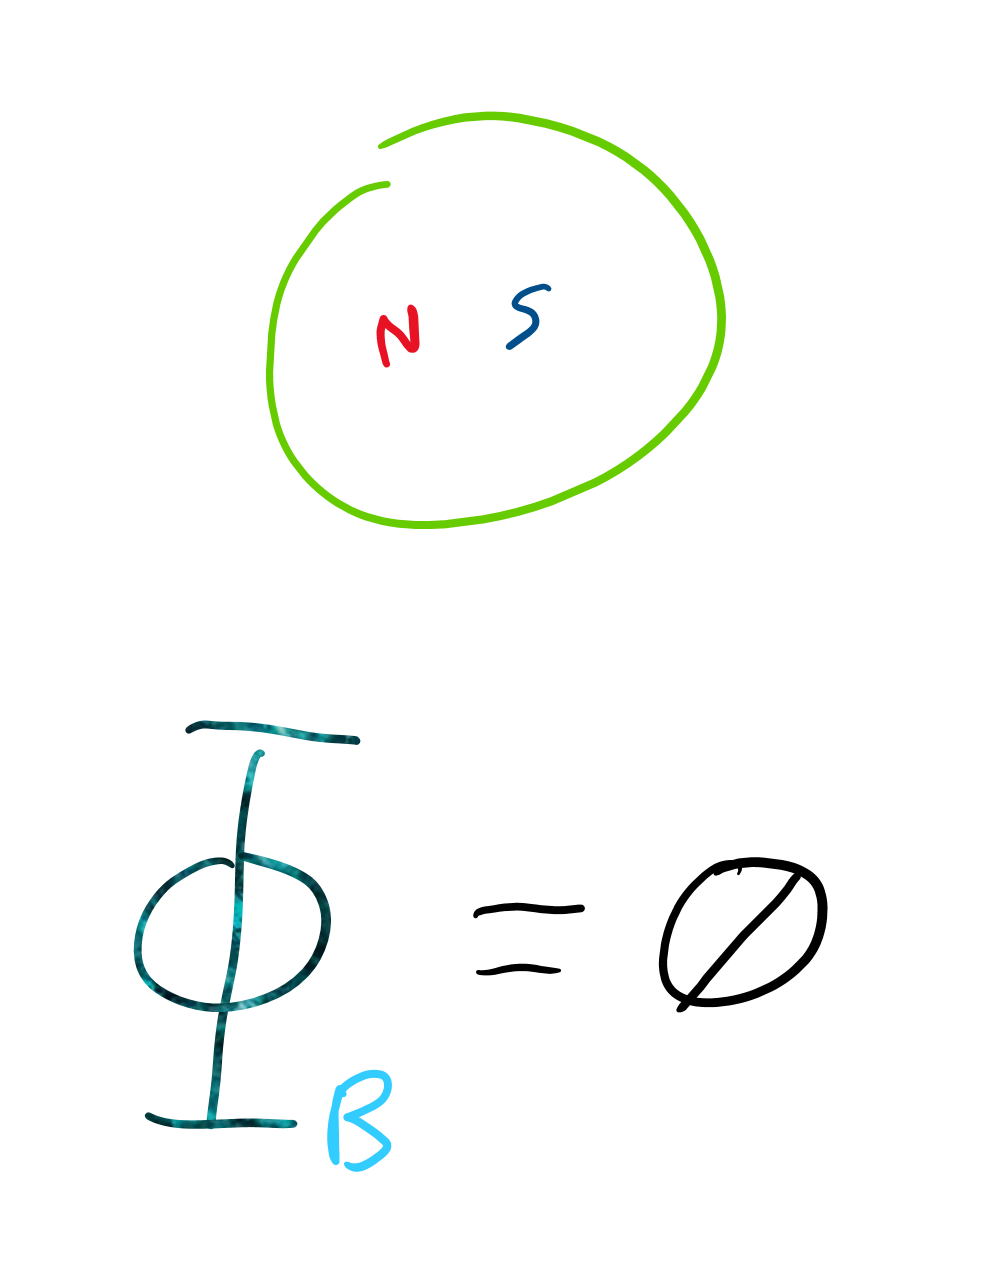 N S
Φ_B = ∅